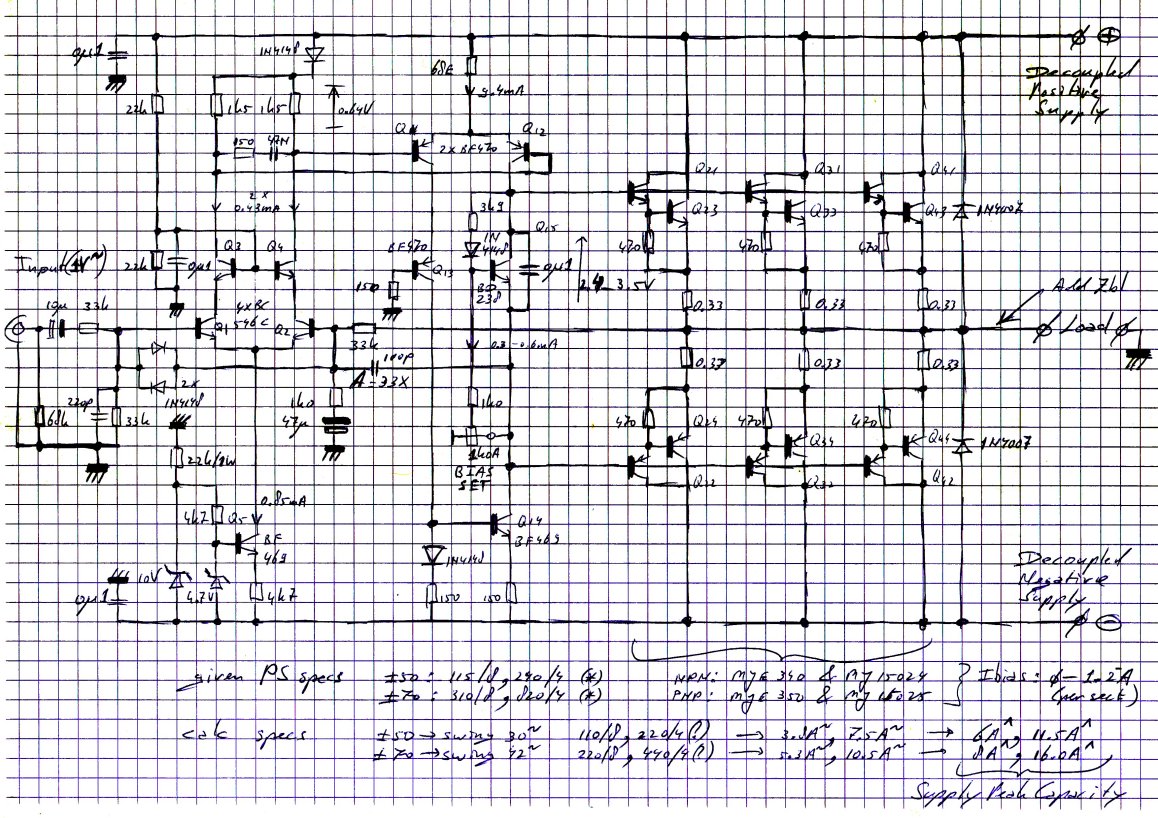 0µ1
1N4148
68E
9.4mA
Decoupled
Positive
Supply
22k
1k5 1k5
0.64V
150 47N
Q12
2x BF470
2x
0.43mA
3k9
Q21
Q31
Q41
Q23
Q33
Q43
1N4007
Input(1V~)
22k
0µ1
Q3
Q4
BF470
Q13
1N
4148
Q15
0µ1
470
470
470
150
2.4-3.5V
10µ
33k
4xBC
546C
Q1
Q2
33k
0.33
0.33
0.33
Add Zbl
Load
100p
A=33X
0.3-0.6mA
0.33
0.33
0.33
2x
1N4148
68k
220p
33k
1k0
47µ
1k0
1k0A
BIAS
SET
470
470
470
Q24
Q34
Q44
1N4007
Q22
Q32
Q42
22k/1W
0.85mA
4k7
Q5
BF
469
Q14
BF469
1N4148
0µ1
10V
4.7V
4k7
150
150
Decoupled
Negative
Supply
given PS specs
±50: 115/8, 240/4 (*)
±70: 310/8, 820/4 (*)
NPN: MJE340 & MJ15024
PNP: MJE350 & MJ15025
Ibias: φ-1.2A
(per sect)
calc specs
±50 → swing 30~ 110/8, 220/4(!) → 3.8A~, 7.5A~ → 6A^, 11.5A^
±70 → swing 42~ 220/8, 440/4(!) → 5.3A~, 10.5A~ → 8A^, 16.0A^
Supply Peak Capacity